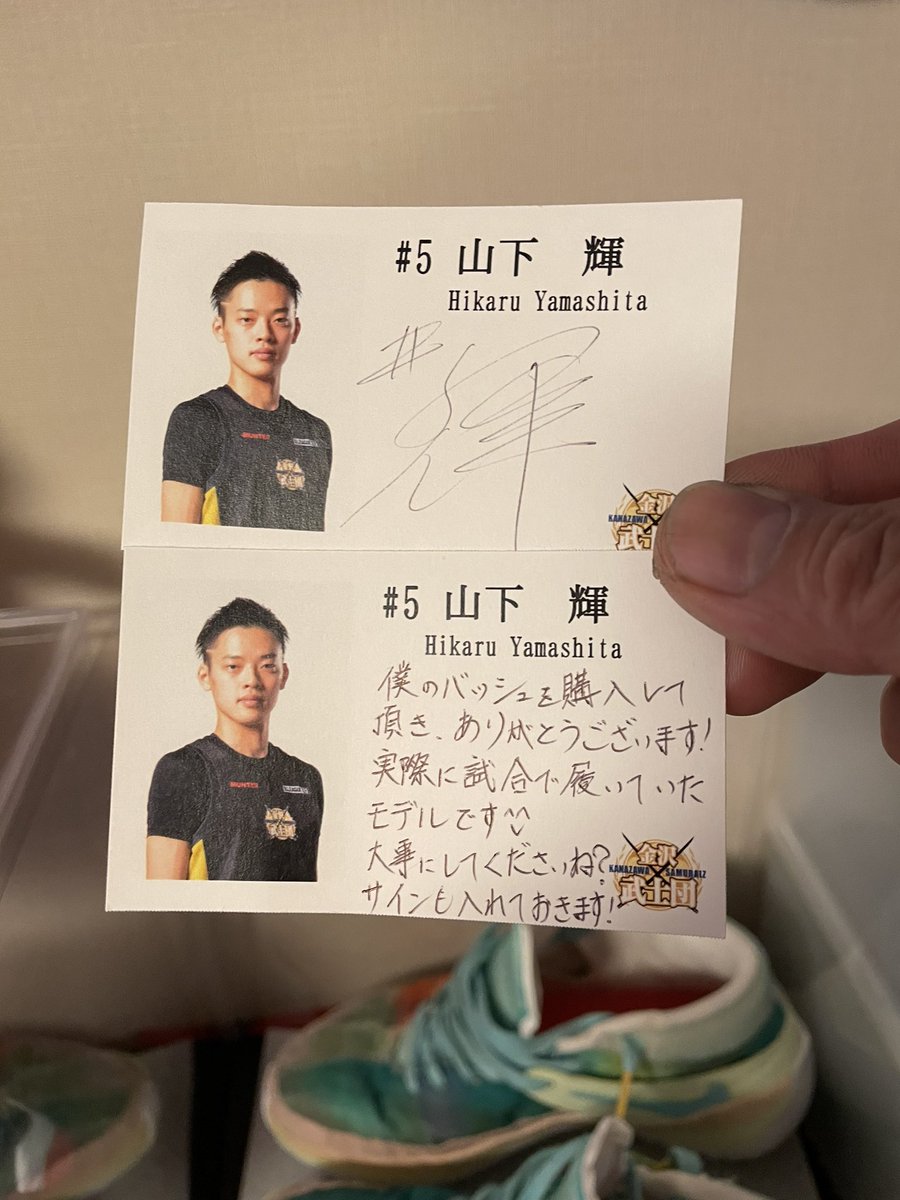 #5 山下 輝
Hikaru Yamashita
# 輝
MUNTERS
金沢
KANAZAWA
武士団
#5 山下 輝
Hikaru Yamashita
僕のバッシュを購入して
頂き、ありがとうございます!
実際に試合で履いていた
モデルです^^
大事にしてくださいね?
サインも入れておきます!
金沢
KANAZAWA SAMURAIZ
武士団